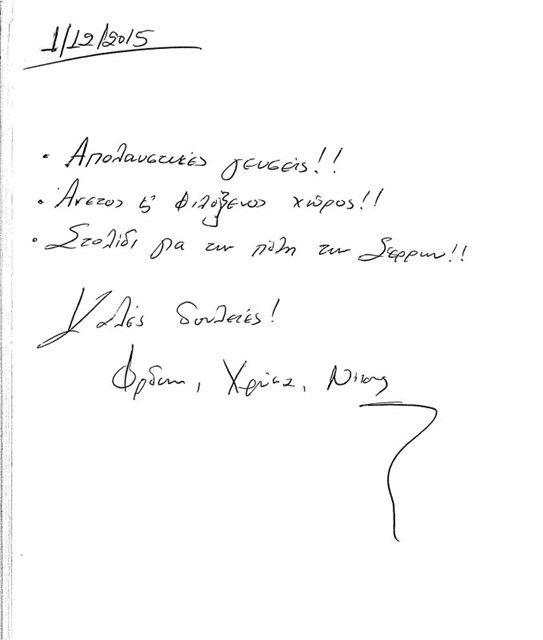 1/12/2015
• Απολαυστικές γευσεις!!
• Άνετος & φιλόξενος χώρος!!
• Στολίδι για την πόλη των Σερρων!!
Καλές δουλειές!